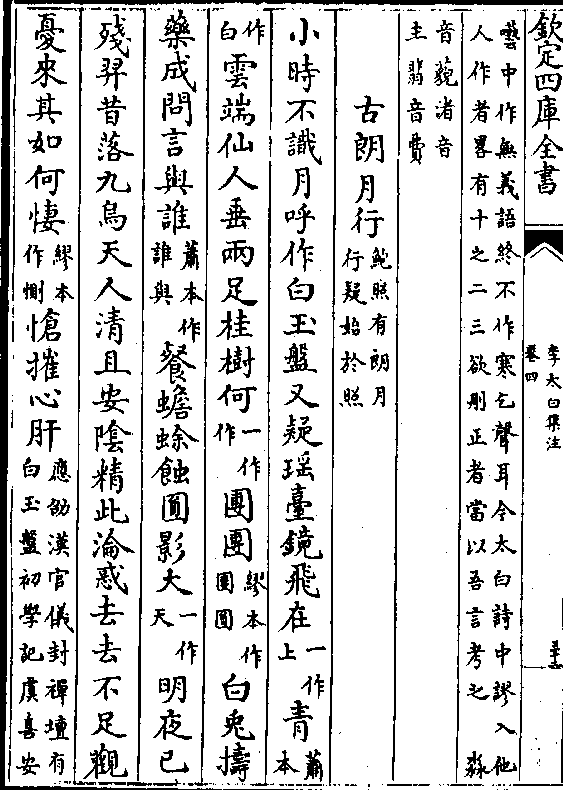 欽定四庫全書
李太白集注
卷四
囈中作無義語終不作寒乞聲耳今太白詩中謬入他
人作者畧有十之二三欲刪正者當以吾言考之 淼
音藐渚音
主翡音費
古朗月行 鮑照有朗月行疑始於照
小時不識月呼作白玉盤又疑瑶臺鏡飛在一作上青蕭本
作白雲端仙人垂兩足桂樹何一作作團團繆本作圓圓白兔擣
藥成問言與誰蕭本作誰與餐蟾蜍蝕圓影大一作天明夜已
殘羿昔落九烏天人清且安陰精此淪惑去去不足觀
憂來其如何悽繆本作惻愴摧心肝應劭漢官儀封禪壇有白玉盤初學記虞喜安